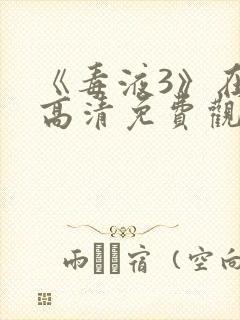 《毒液3》在
高清免費觀
雨宿（空向